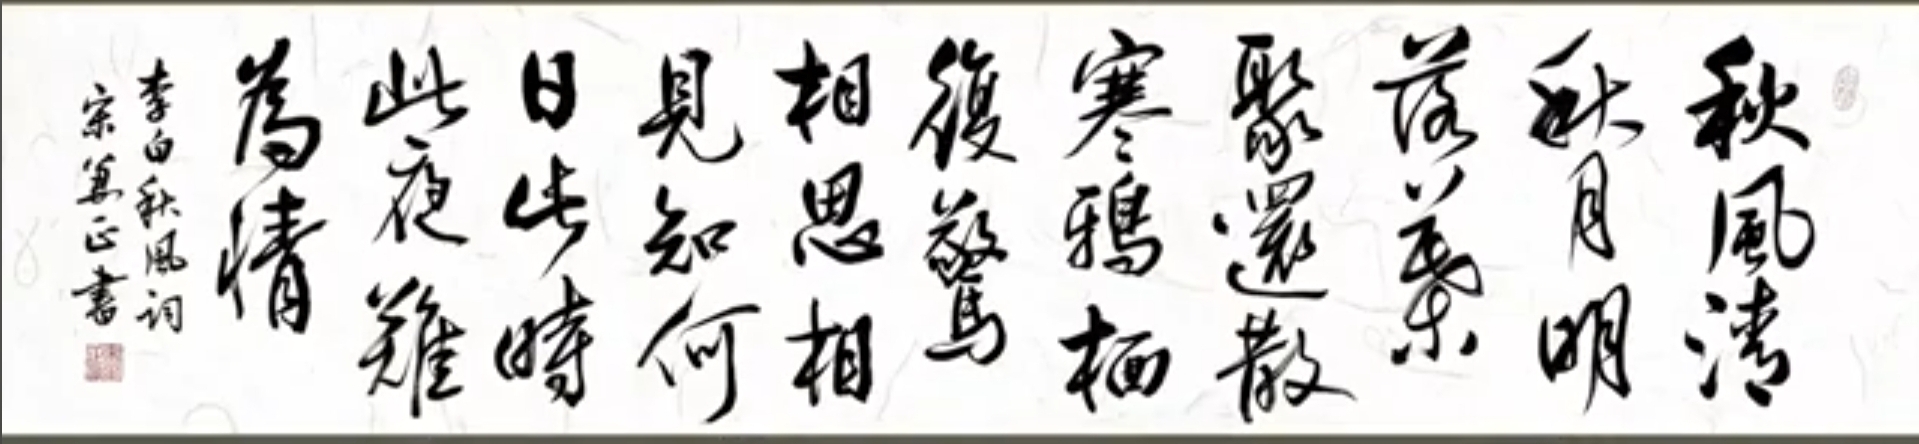 秋風清
秋月明
落葉
聚還散
寒鴉栖
復驚
相思相
見知何
日此時
此夜難
為情
李白秋風詞
宋正書